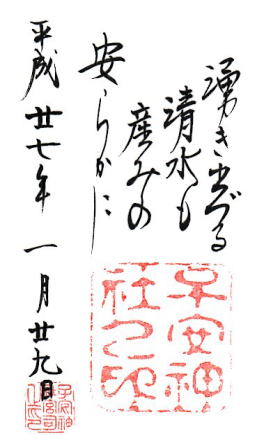 湧き出づる
清水も
産みの
安らかに
平成廿七年 一月廿九日
子安神
社之印